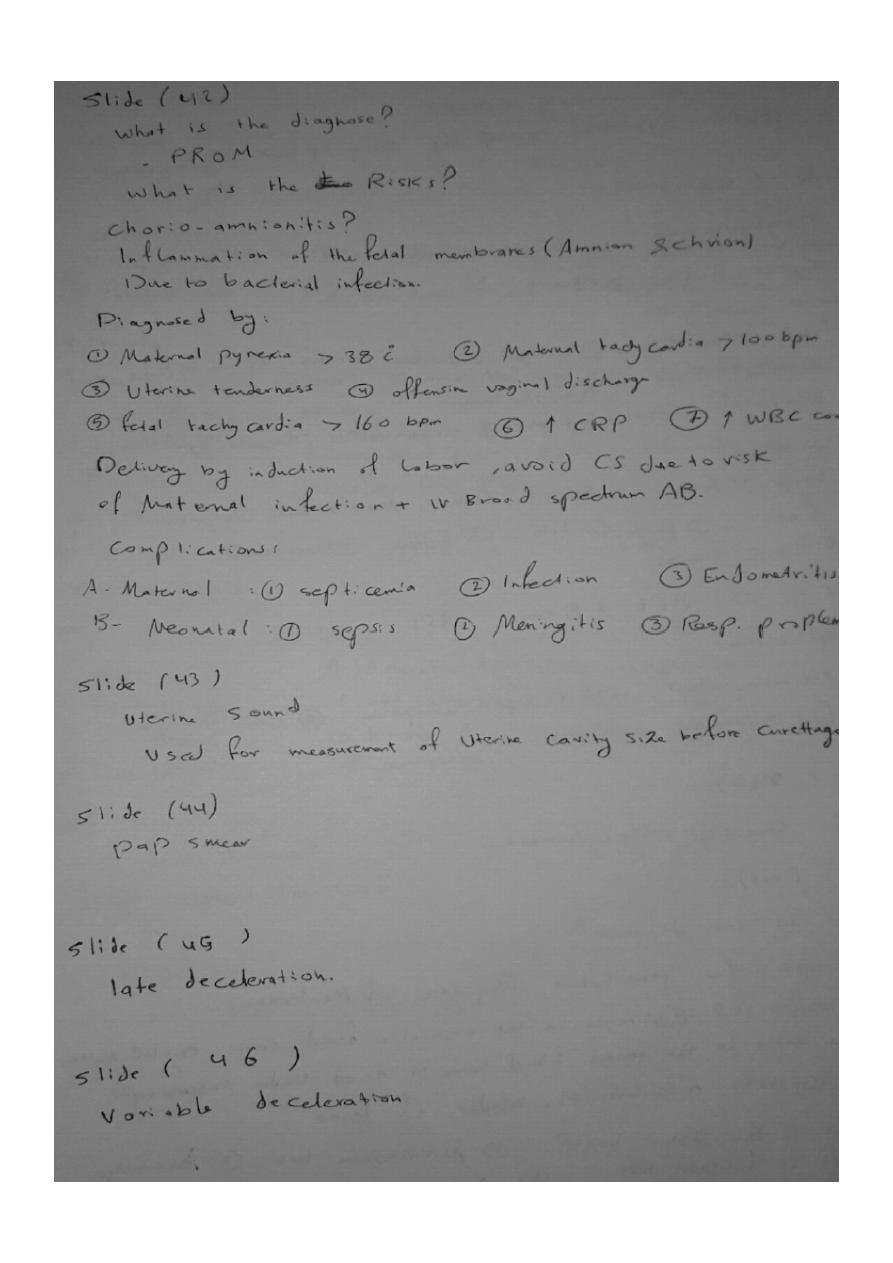 Slide (42)
What is the diagnose?
- PROM
What is the Risks?
Chorio-amnionitis?
Inflammation of the fetal membranes (Amnion & chorion)
Due to bacterial infection.
Diagnosed by:
① Maternal pyrexia > 38 c̊ ② Maternal tachycardia > 100 bpm
③ Uterine tenderness ④ offensive vaginal discharge
⑤ fetal tachycardia > 160 bpm ⑥ ↑ CRP ⑦ ↑ WBC co
Delivery by induction of labor, avoid CS due to risk
of Maternal infection + IV Broad spectrum AB.
Complications:
A- Maternal : ① septicemia ② Infection ③ Endometritis
B- Neonatal : ① sepsis ② Meningitis ③ Resp. problem
Slide (43)
Uterine Sound
Used for measurement of Uterine Cavity size before Curettage
Slide (44)
pap smear
Slide (45)
late deceleration.
Slide (46)
Variable deceleration